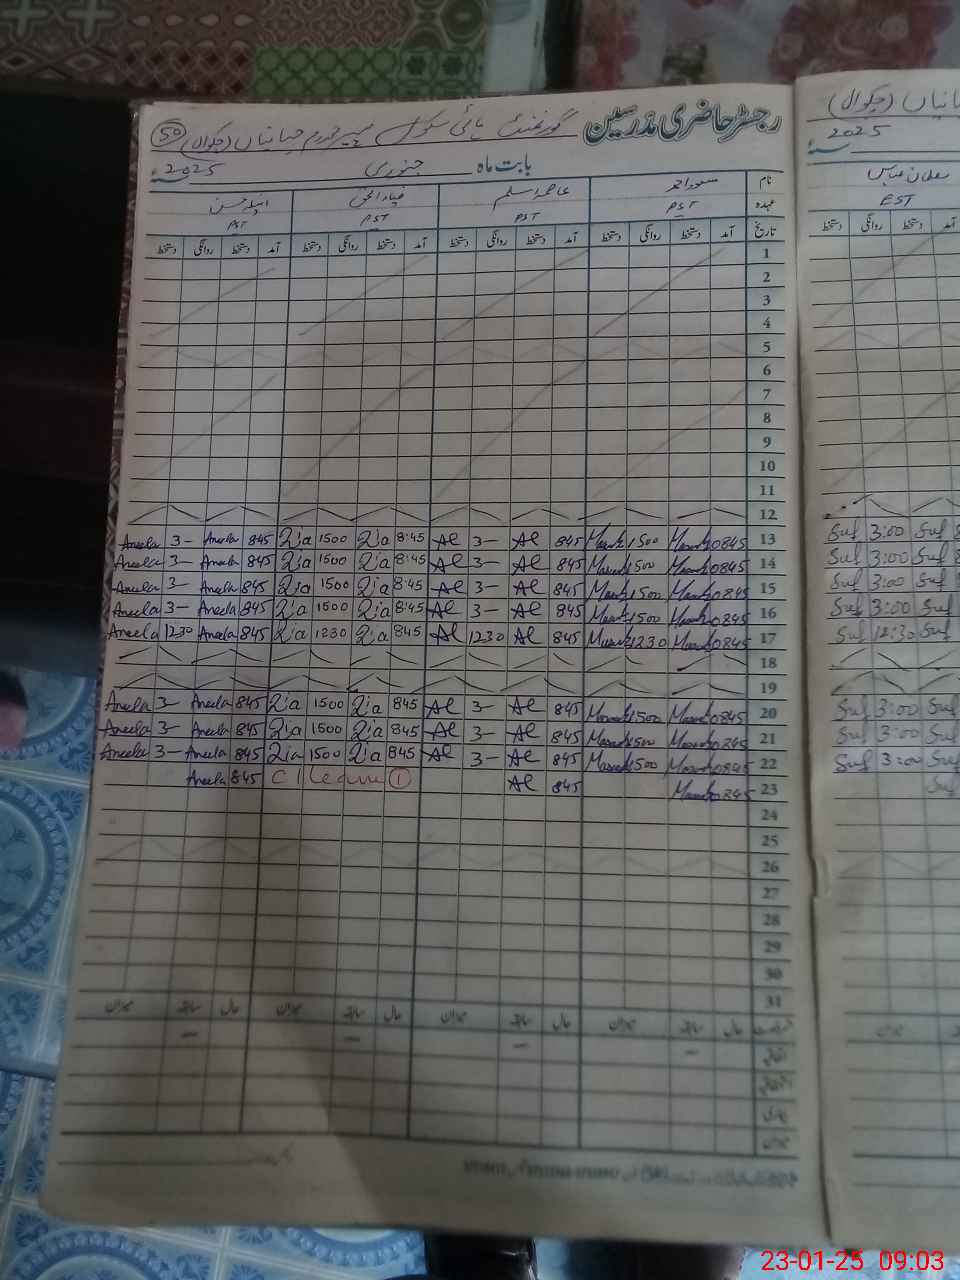 رجسٹر حاضری مدرسین گورنمنٹ ہائی سکول (چکوال) 50
بابت ماہ جنوری 2025
نام مسعود احمد عاصمہ اسلم ضیاء الحق
عہدہ PST PST PST PST
تاریخ آمد دستخط روانگی دستخط آمد دستخط روانگی دستخط آمد دستخط روانگی دستخط آمد دستخط روانگی دستخط
1
2
3
4
5
6
7
8
9
10
11
12
Aneela 3- Aneela 845 Zia 1500 Zia 8:45 Al 3- Al 845 Masood 1500 Masood 0845 13
Aneela 3- Aneela 845 Zia 1500 Zia 8:45 Al 3- Al 845 Masood 1500 Masood 0845 14
Aneela 3- Aneela 845 Zia 1500 Zia 8:45 Al 3- Al 845 Masood 1500 Masood 0845 15
Aneela 3- Aneela 845 Zia 1500 Zia 8:45 Al 3- Al 845 Masood 1500 Masood 0845 16
Aneela 1230 Aneela 845 Zia 1230 Zia 845 Al 1230 Al 845 Masood 1230 Masood 0845 17
18
19
Aneela 3- Aneela 845 Zia 1500 Zia 845 Al 3- Al 845 Masood 1500 Masood 0845 20
Aneela 3- Aneela 845 Zia 1500 Zia 845 Al 3- Al 845 Masood 1500 Masood 0845 21
Aneela 3- Aneela 845 Zia 1500 Zia 845 Al 3- Al 845 Masood 1500 Masood 0845 22
Aneela 845 C/Leave 1 Al 845 Masood 0845 23
24
25
26
27
28
29
30
31
حال سابقہ میزان حال سابقہ میزان حال سابقہ میزان حال سابقہ میزان
(چکوال)
2025
EST
دستخط روانگی دستخط
Suf 3:00 Suf
Suf 3:00 Suf
Suf 3:00 Suf
Suf 3:00 Suf
Suf 12:30 Suf
Suf 3:00 Suf
Suf 3:00 Suf
Suf 3:00 Suf
Suf
میزان
23-01-25 09:03